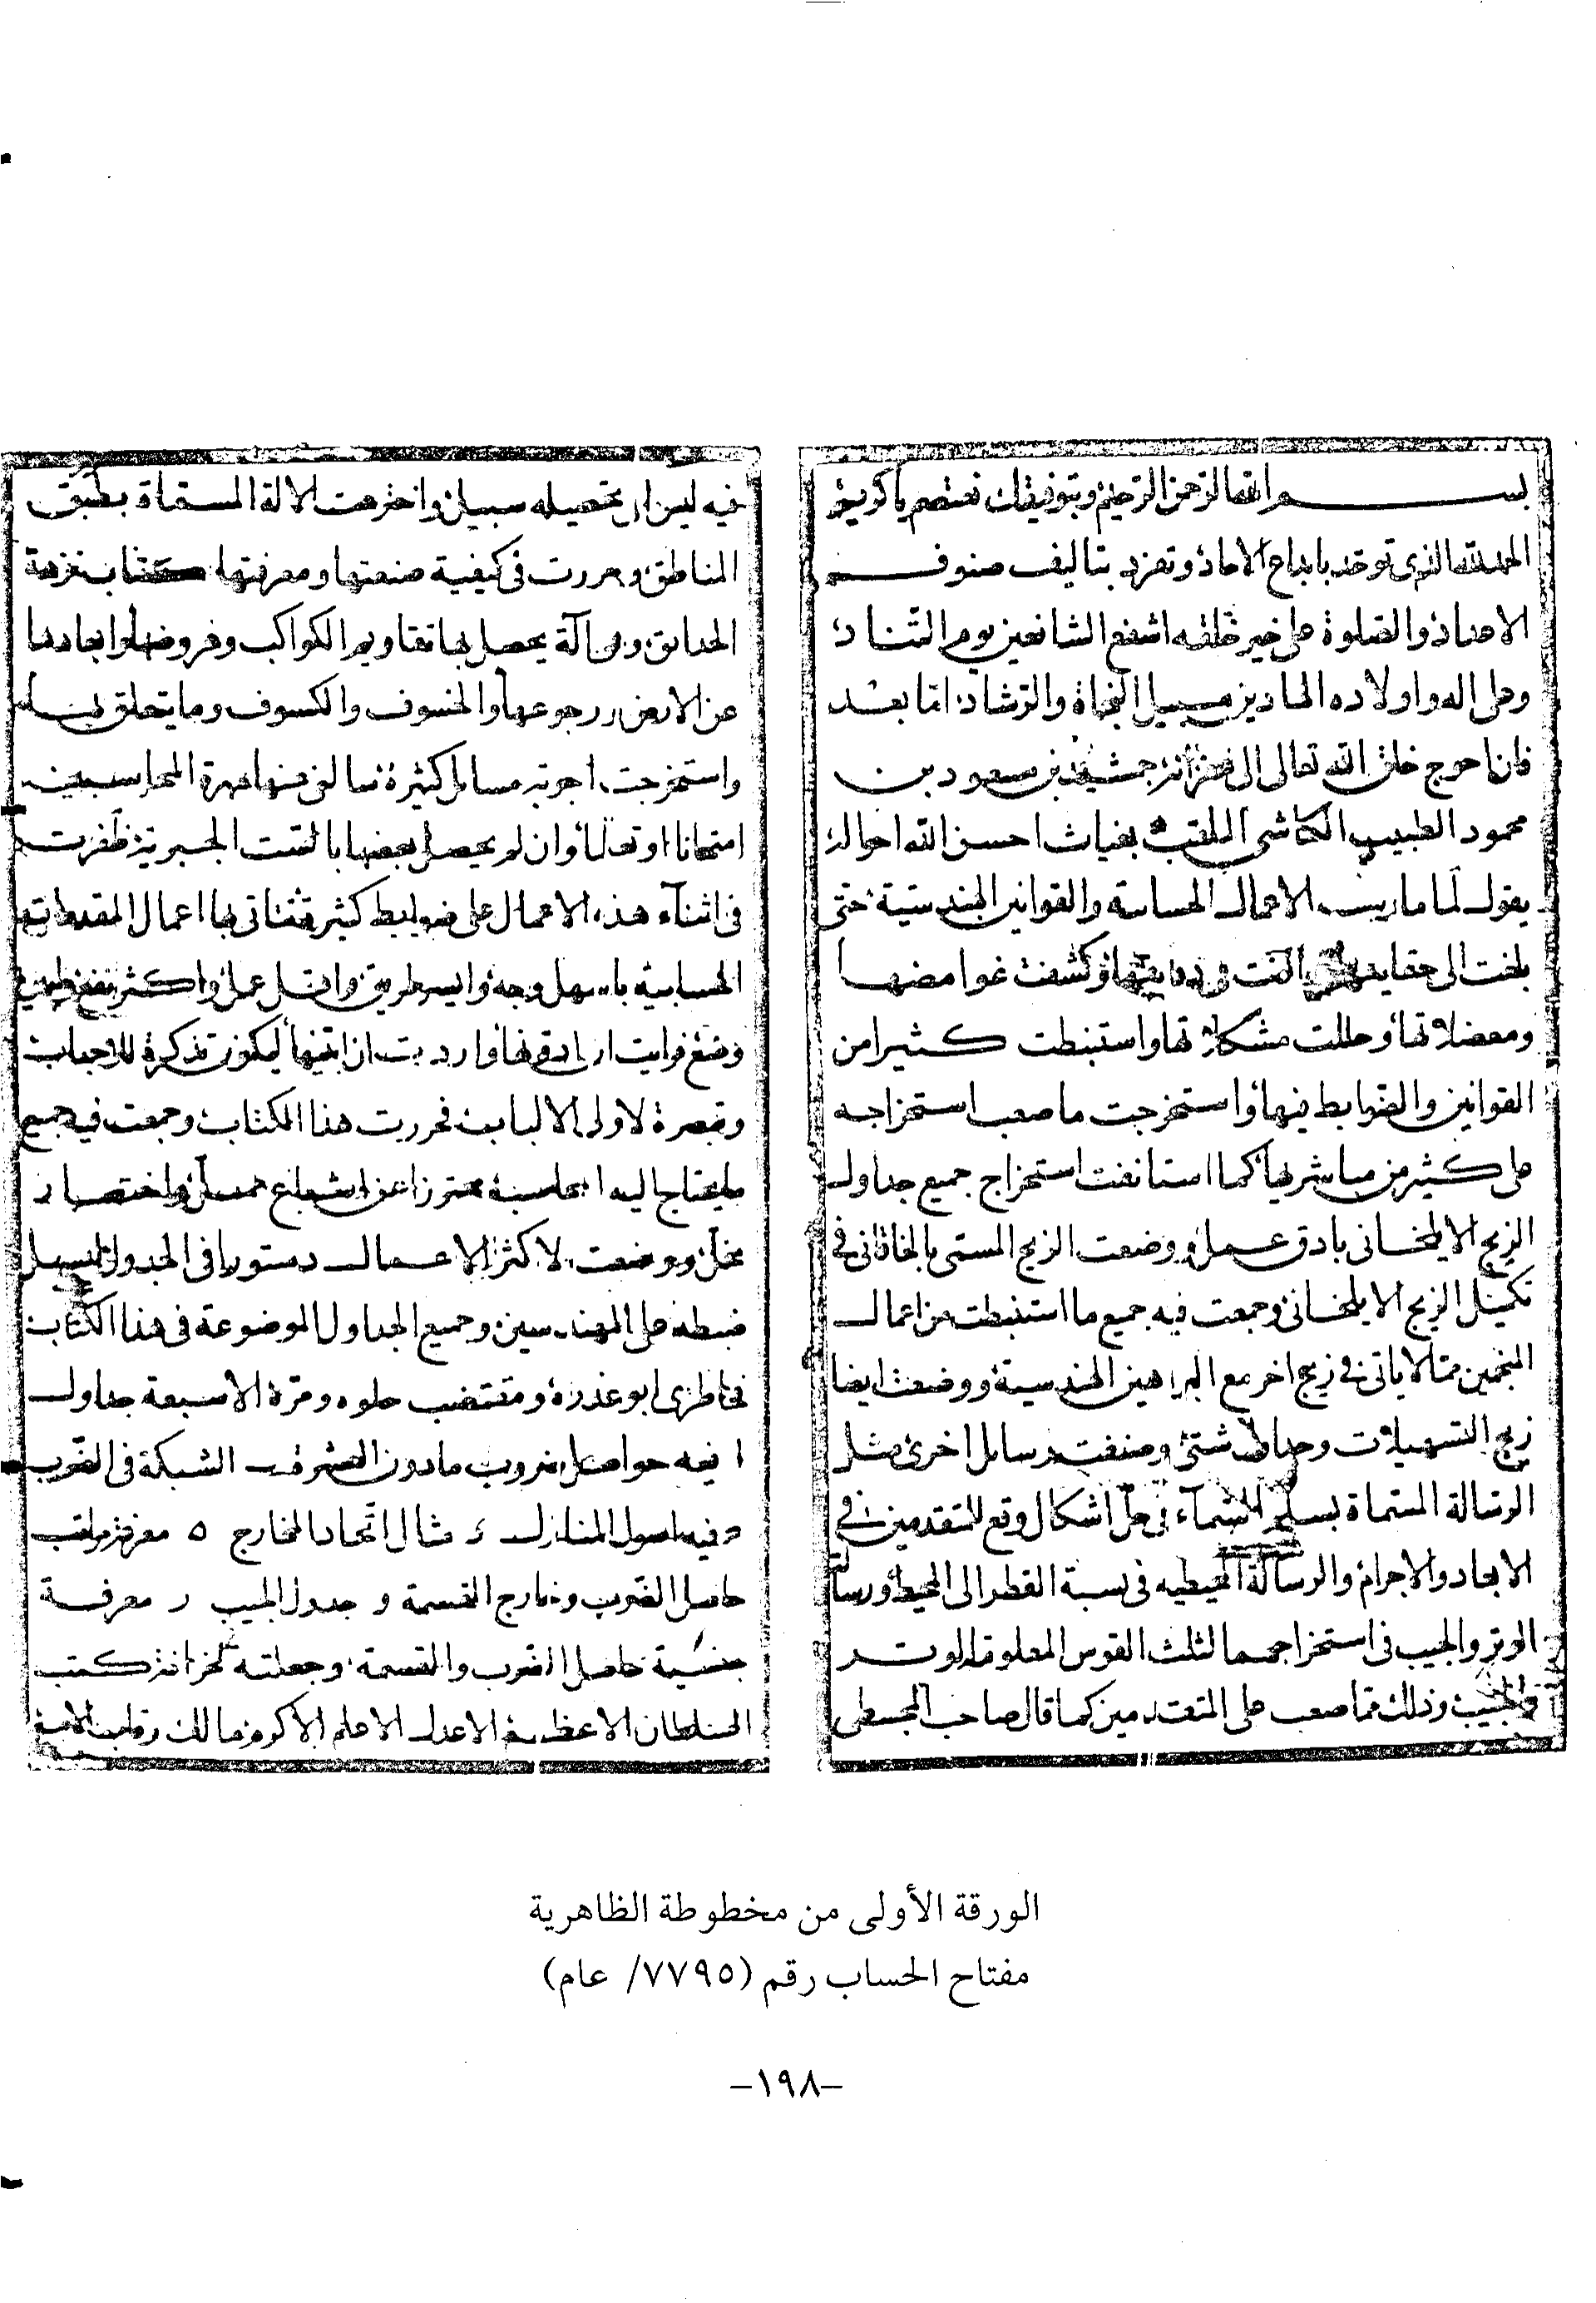 بســم الله الرحمن الرحيم وبتوفيقك نعتصم يا كريم
الحمد لله الذي توحد بابداع الاحاد وتفرد بتاليف صنوف
الاعداد والصلوة على خير خلقه اشفع الشافعين يوم التناد
وعلى اله واولاده الهاديز سبيل النجاة والرشاد اما بعد
فان احوج خلق الله تعالى الى غفرانه جمشيد بن مسعود بن
محمود الطبيب الكاشي الملقب بغياث احسن الله احواله
يقول لما مارست الاعمال الحسابية والقوانين الهندسية حتى
بلغت الى حقايقها بالغت في دقايقها وكشفت غوامضها
ومعضلاتها وحللت مشكلاتها واستنبطت كثيرا من
القوانين والضوابط فيها واستخرجت ما صعب استخراجه
على كثير من مباشريها كما استانفت استخراج جميع جداول
الزيج الايلخاني بادق عمل ووضعت الزيج المسمى بالخاقاني في
تكميل الزيج الايلخاني وجمعت فيه جميع ما استنبطت من اعمال
المنجمين مما لا ياتي في زيج اخر مع البراهين الهندسية ووضعت ايضا
زيج التسهيلات وجداول شتى وصنفت رسائل اخرى مثل
الرسالة المسماة بسلم السماء في حل اشكال وقع للمتقدمين في
الابعاد والاجرام والرسالة المحيطيه في نسبة القطر الى المحيط ورسالة
الوتر والجيب في استخراجهما لثلث القوس المعلومة الوتر
والجيب وذلك مما صعب على المتقدمين كما قال صاحب المجسطي
فيه ليس الى تحصيله سبيل واخترعت الالة المسماة بطبق
المناطق وحررت في كيفية صنعتها ومعرفتها كتاب نزهة
الحدايق وهي آلة يحصل بها تقاويم الكواكب وعروضها وابعادها
عن الارض ورجوعها والخسوف والكسوف وما يتعلق بها
واستخرجت اجوبة مسائل كثيرة سالني عنها مهرة المحاسبين
امتحانا او تعلما وان لم يحصل بعضها بالستت الجبرية ظفرت
في اثناء هذه الاعمال على ضوابط كثيرة تتاتى بها اعمال المقدمات
الحسابية باسهل وجه وايسر طريق واقل عمل واكثر نفع
وضع فرايت اردت ان اثبتها ليكون تذكرة للاحباب
وتبصرة لاولى الالباب فحررت هذا الكتاب وجمعت فيه جميع
ما يحتاج اليه المحاسب محترزا عن اشباع ممل واختصار
مخل ووضعت لاكثر الاعمال دستورا في الجدول ليسهل
ضبطه على المهندسين وجميع الجداول الموضوعة في هذا الكتاب
خاطري ابو عذره ومقتضب حلوه ومره الا سبعة جداول
ا فيه حواصل ضروب ما دون العشرة ب الشبكة في الضرب
ح فيه اصول المنازل د مثال اتحاد المخارج ه معرفة مراتب
حاصل الضرب وخارج القسمة و جدول الجيب ز معرفة
جنسية حاصل الضرب والقسمة وجعلته لخزانة كتب
السلطان الاعظم الاعدل الاعلم الاكرم مالك رقاب الامم
الورقة الأولى من مخطوطة الظاهرية
مفتاح الحساب رقم (٧٧٩٥/ عام)
–١٩٨–